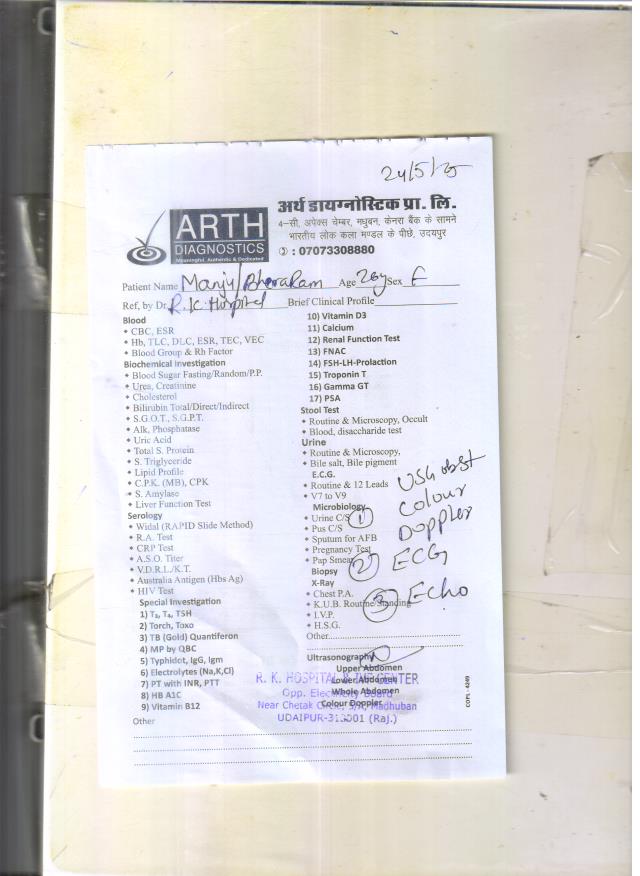 24/5/25
ARTH
DIAGNOSTICS
Meaningful, Authentic & Dedicated
अर्थ डायग्नोस्टिक प्रा. लि.
4-सी, अपेक्स चेम्बर, मधुबन, केनरा बैंक के सामने
भारतीय लोक कला मण्डल के पीछे, उदयपुर
: 07073308880
Patient Name Manju/BheraRam Age 26y Sex F
Ref, by Dr. R.K. Hospital Brief Clinical Profile
Blood
CBC, ESR
Hb, TLC, DLC, ESR, TEC, VEC
Blood Group & Rh Factor
Biochemical Investigation
Blood Sugar Fasting/Random/P.P.
Urea, Creatinine
Cholesterol
Bilirubin Total/Direct/Indirect
S.G.O.T., S.G.P.T.
Alk, Phosphatase
Uric Acid
Total S. Protein
S. Triglyceride
Lipid Profile
C.P.K. (MB), CPK
S. Amylase
Liver Function Test
Serology
Widal (RAPID Slide Method)
R.A. Test
CRP Test
A.S.O. Titer
V.D.R.L./K.T.
Australia Antigen (Hbs Ag)
HIV Test
Special Investigation
1) T₃, T₄, TSH
2) Torch, Toxo
3) TB (Gold) Quantiferon
4) MP by QBC
5) Typhidot, IgG, Igm
6) Electrolytes (Na,K,Cl)
7) PT with INR, PTT
8) HB A1C
9) Vitamin B12
Other
10) Vitamin D3
11) Calcium
12) Renal Function Test
13) FNAC
14) FSH-LH-Prolaction
15) Troponin T
16) Gamma GT
17) PSA
Stool Test
Routine & Microscopy, Occult
Blood, disaccharide test
Urine
Routine & Microscopy,
Bile salt, Bile pigment
E.C.G.
Routine & 12 Leads
V7 to V9
Microbiology
Urine C/S
Pus C/S
Sputum for AFB
Pregnancy Test
Pap Smear
Biopsy
X-Ray
Chest P.A.
K.U.B. Routine/Standing
I.V.P.
H.S.G.
Other
Ultrasonography
Upper Abdomen
Lower Abdomen
Whole Abdomen
Colour Doppler
1 USG obst
Colour
Doppler
2 ECG
3 Echo
R. K. HOSPITAL & CENTER
Opp. Electricity Board
Near Chetak Circle, Madhuban
UDAIPUR-313001 (Raj.)
COPL - 4249